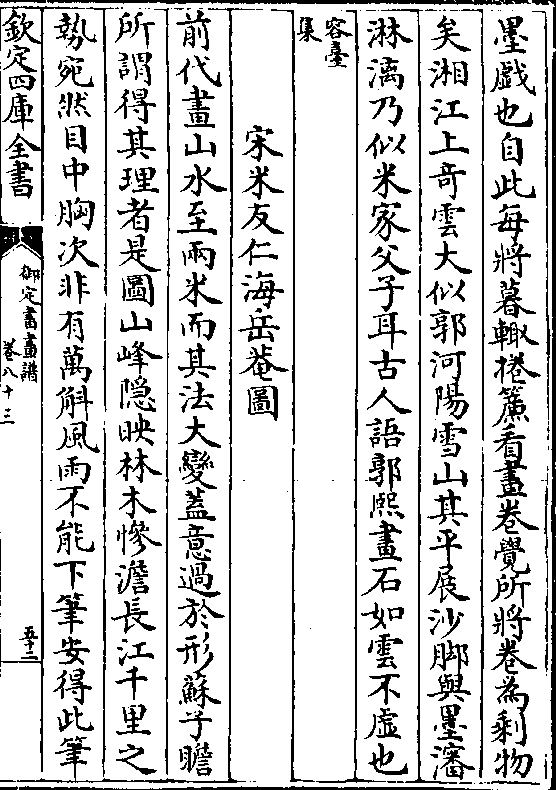 墨戲也自此每將暮輙捲簾看畫卷覺所將卷為剩物
矣湘江上竒雲大似郭河陽雪山其平展沙脚與墨瀋
淋漓乃似米家父子耳古人語郭熙畫石如雲不虚也
容臺
集
宋米友仁海岳菴圖
前代畫山水至兩米而其法大變蓋意過於形蘇子瞻
所謂得其理者是圖山峰隠映林木慘澹長江千里之
勢宛然目中胸次非有萬斛風雨不能下筆安得此筆
欽定四庫全書
御定書畫譜
卷八十三
五十二